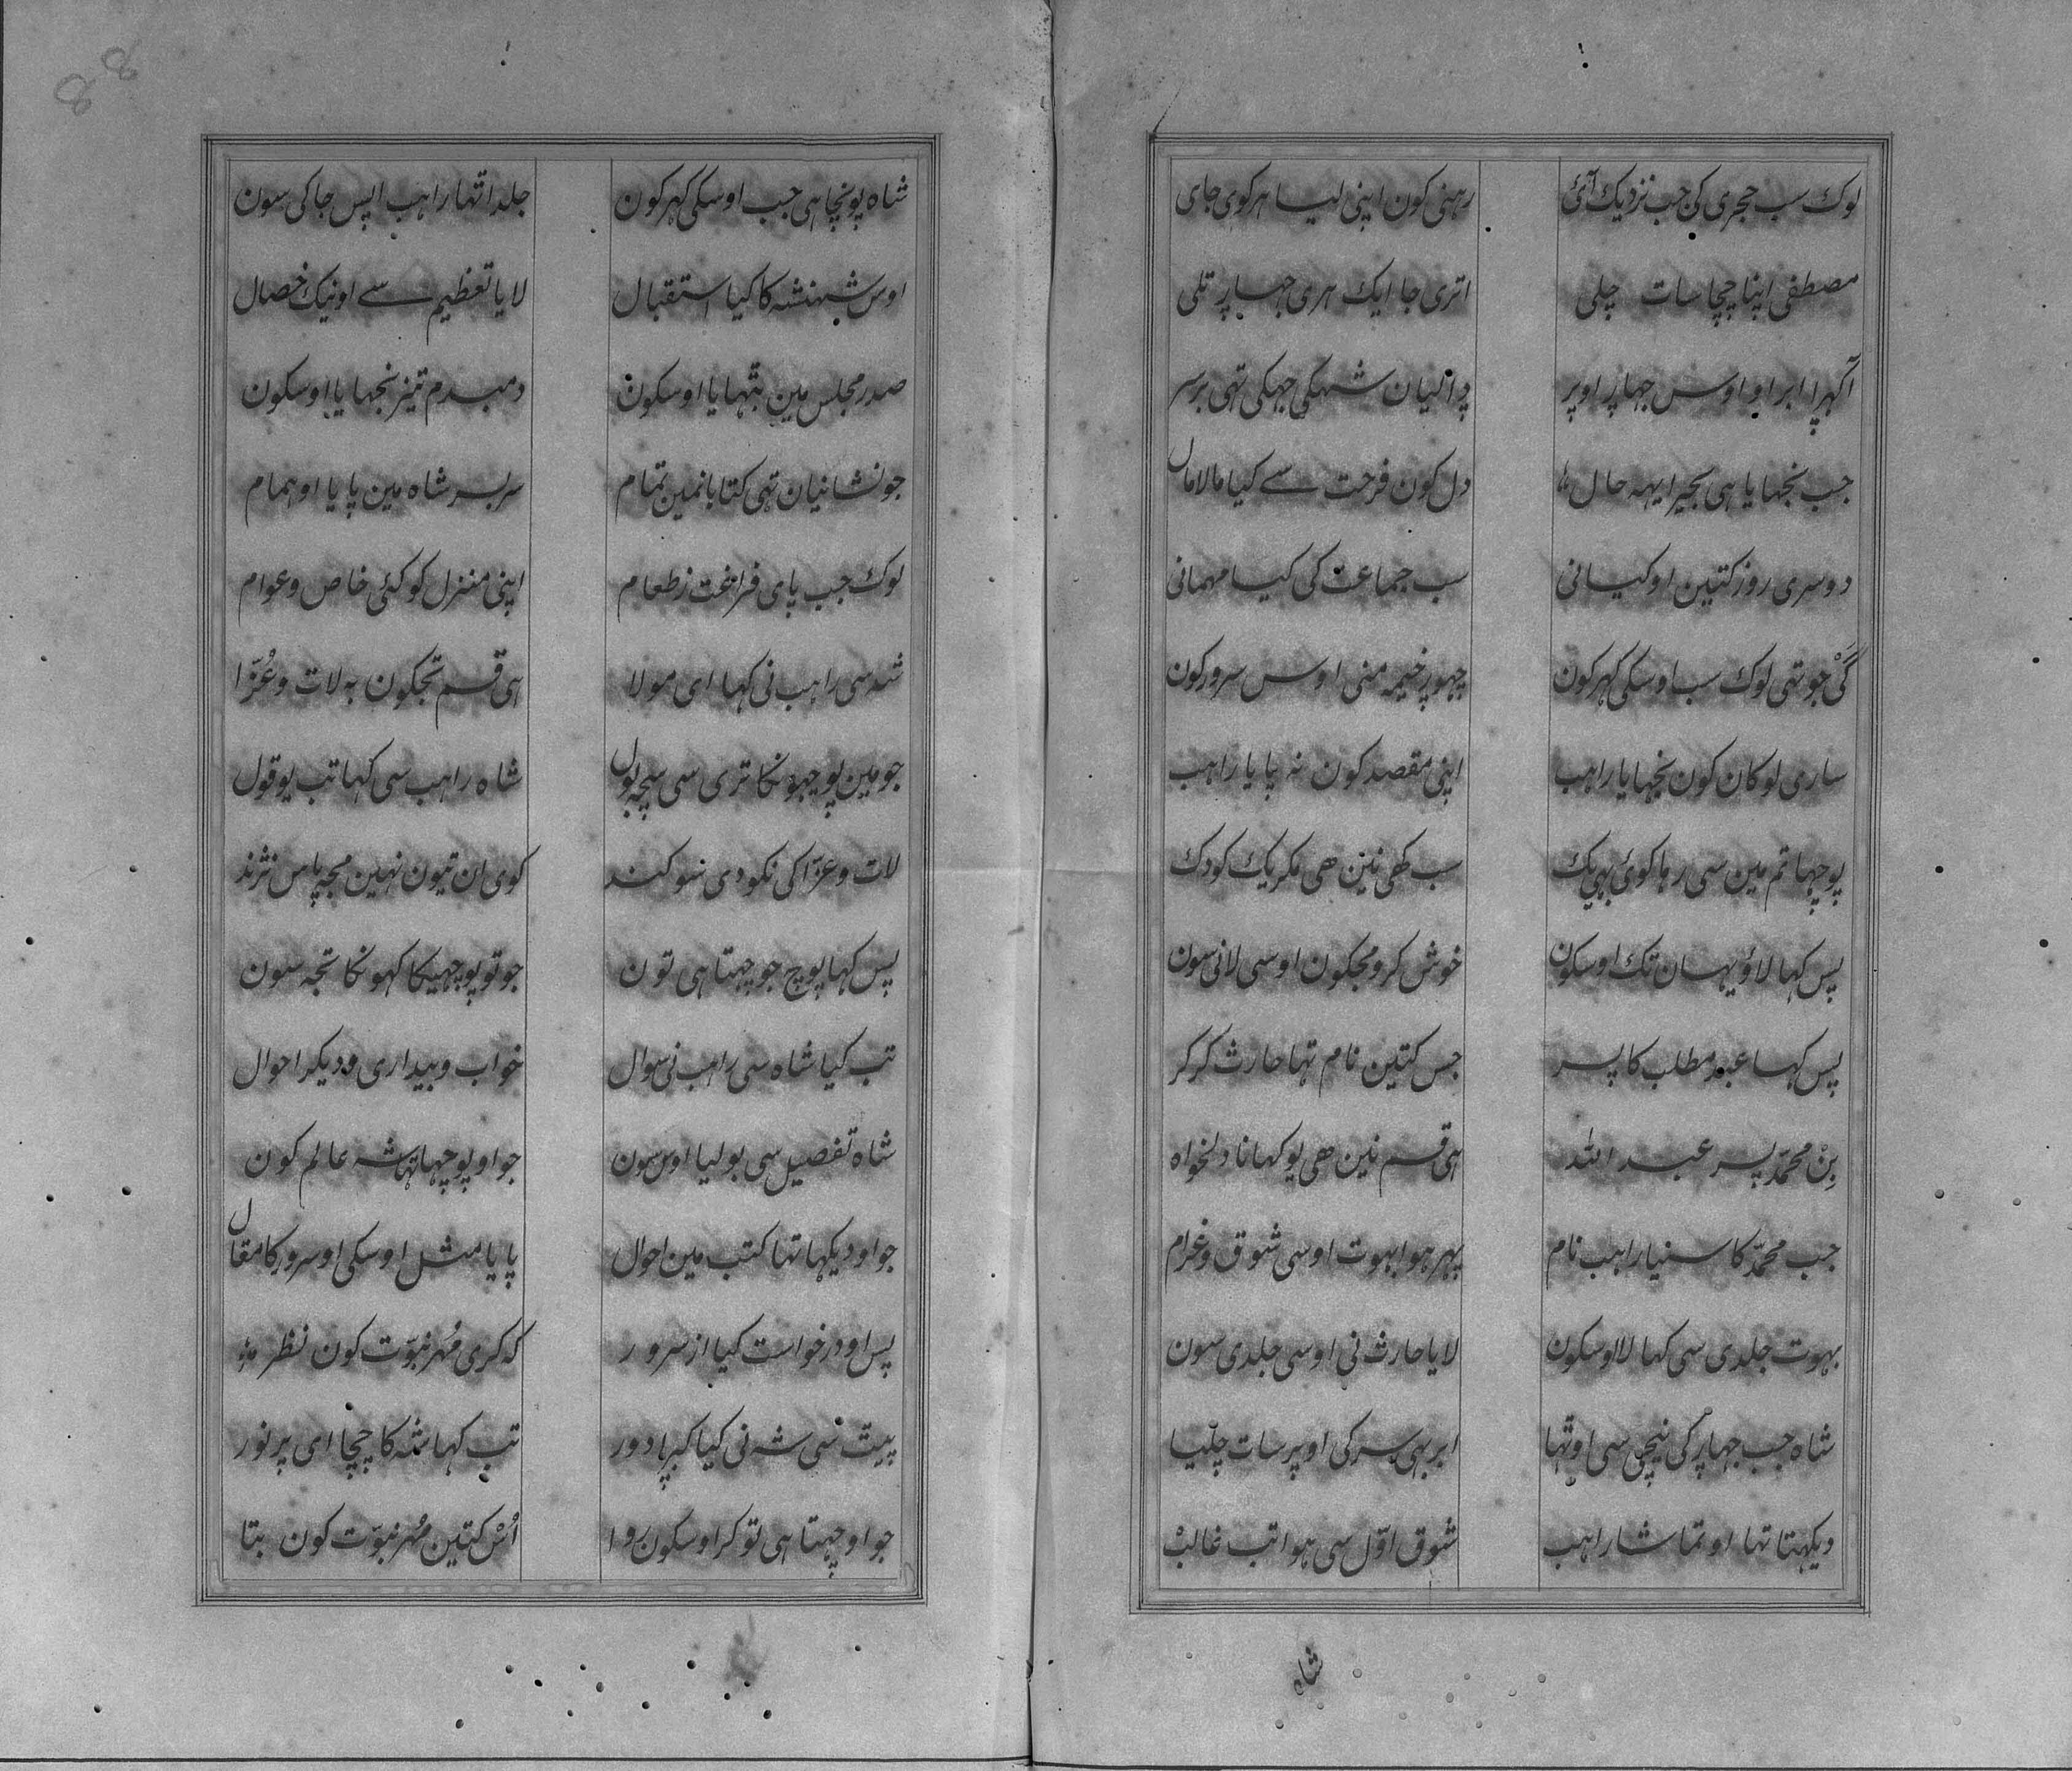 لوک سب حجری کی جب نزدیک آئ رہنی کون اپنی لیا ہر کوی جای
مصطفی اپنا چچا سات چلی اتری جا ایک ہری جہاپر تلی
آکہرا ابر او اوس جہاپر اوپر دالیان شہکی جہکی تہی بر سر
جب نجہایا ہی بحیرا یہہ حال دل کون فرحت سے کیا مالامال
دوسری روز کتین او کیانی سب جماعت کی کیا مہمانی
گئ جو تہی لوک سب اوسکی کہر کون چہوپر خیمہ منی اوس سرور کون
ساری لوکان کون نجہایا راہب اپنی مقصد کون نہ پایا راہب
پوچہا تم مین سی رہا کوئ بہی یک سب کہی نین ہی مکر یک کودک
پس کہا لاؤ یہان تک اوسکون خوش کرو مجکون اوسی لانی سون
پس کہا عبد مطلب کا پسر جس کتین نام تہا حارث کر کر
بِنْ محمّد پسر عبد اللہ ہی قسم نین ہی یو کہانا دلخواہ
جب محمّد کا سنیا راہب نام پہر ہوا بہوت اوسی شوق و غرام
بہوت جلدی سی کہا لا اوسکون لایا حارث نی اوسی جلدی سون
شاہ جب جہاپر کی نیچی سی اوتہا ابر بہی سر کی اوپر سات چلیا
دیکہتا تہا او تماشا راہب شوق اوّل سی ہوا تب غالبْ
شاہ
شاہ پونچا ہی جب اوسکی کہر کون جلد اتہا راہب اپس جاکی سون
اوس شہنشہ کا کیا استقبال لایا تعظیم سے او نیک خصال
صدر مجلس مین بتہایا اوسکون دمبدم تیز نجہایا اوسکون
جو نشانیان تہی کتابا نمین تمام سربسر شاہ مین پایا او ہمام
لوک جب پای فراغت ز طعام اپنی منزل کو کئی خاص و عوام
شہ سی راہب نی کہا ای مولا ہی قسم تجکون بہ لات و عُزّا
جو مین پوچہونکا تری سی سچ بول شاہ راہب سی کہا تب یو قول
لات و عزّا کی نکو دی سوکند کوی ان تیون نہین مجہ پاس نژند
پس کہا پوچ جو چہتا ہی تون جو تو پوچہیکا کہونکا تجہ سون
تب کیا شاہ سی راہب نی سوال خواب و بیداری و دیکر احوال
شاہ تفصیل سی بولیا اوس سون جو او پوچہا تہا شہ عالم کون
جو او دیکہا تہا کتب مین احوال پایا مثل اوسکی او سرور کا مقال
پس او درخواست کیا از سرور کہ کری مُہر نبوّت کون نظر
پیت سی شہ نی کیا کپرا دور تب کہا شہ کا چچا ای پر نور
جو او چہتا ہی تو کر اوسکون روا اُسْ کتین مُہر نبوّت کون بتا